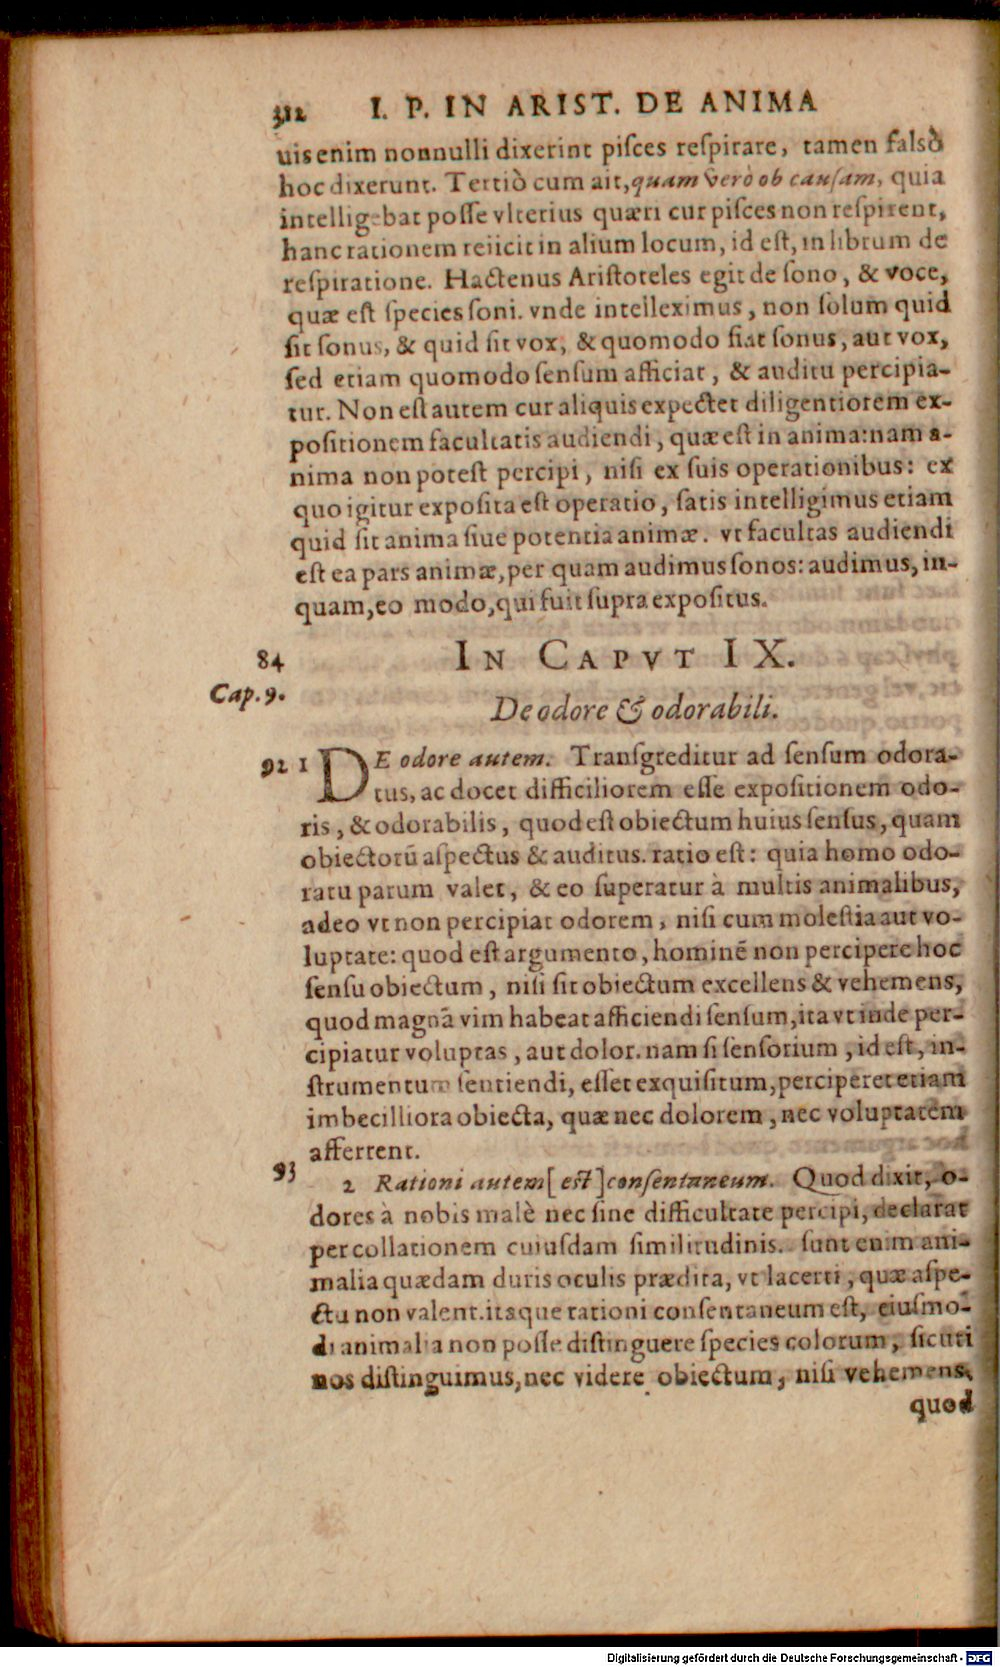 312 I. P. IN ARIST. DE ANIMA
uis enim nonnulli dixerint piſces reſpirare, tamen falsò
hoc dixerunt. Tertiò cum ait, quam verò ob cauſam, quia
intelligebat poſſe vlterius quæri cur piſces non reſpirent,
hanc rationem reiicit in alium locum, id eſt, in librum de
reſpiratione. Hactenus Ariſtoteles egit de ſono, & voce,
quæ eſt ſpecies ſoni. vnde intelleximus, non ſolum quid
ſit ſonus, & quid ſit vox, & quomodo fiat ſonus, aut vox,
ſed etiam quomodo ſenſum afficiat, & auditu percipia-
tur. Non eſt autem cur aliquis expectet diligentiorem ex-
poſitionem facultatis audiendi, quæ eſt in anima: nam a-
nima non poteſt percipi, niſi ex ſuis operationibus: ex
quo igitur expoſita eſt operatio, ſatis intelligimus etiam
quid ſit anima ſiue potentia animæ. vt facultas audiendi
eſt ea pars animæ, per quam audimus ſonos: audimus, in-
quam, eo modo, qui fuit ſupra expoſitus.
84 IN CAPVT IX.
Cap. 9.
De odore & odorabili.
92 1 DE odore autem. Tranſgreditur ad ſenſum odora-
tus, ac docet difficiliorem eſſe expoſitionem odo-
ris, & odorabilis, quod eſt obiectum huius ſenſus, quam
obiectorū aſpectus & auditus. ratio eſt: quia homo odo-
ratu parum valet, & eo ſuperatur à multis animalibus,
adeo vt non percipiat odorem, niſi cum moleſtia aut vo-
luptate: quod eſt argumento, hominē non percipere hoc
ſenſu obiectum, niſi ſit obiectum excellens & vehemens,
quod magnā vim habeat afficiendi ſenſum, ita vt inde per-
cipiatur voluptas, aut dolor. nam ſi ſenſorium, id eſt, in-
ſtrumentum ſentiendi, eſſet exquiſitum, perciperet etiam
imbecilliora obiecta, quæ nec dolorem, nec voluptatem
afferrent.
93 2 Rationi autem [est] conſentaneum. Quod dixit, o-
dores à nobis malè nec ſine difficultate percipi, declarat
per collationem cuiuſdam ſimilitudinis. ſunt enim ani-
malia quædam duris oculis prædita, vt lacerti, quæ aſpe-
ctu non valent. itaque rationi conſentaneum eſt, eiuſmo-
di animalia non poſſe diſtinguere ſpecies colorum, ſicuti
nos diſtinguimus, nec videre obiectum, niſi vehemens,
quod
Digitalisierung gefördert durch die Deutsche Forschungsgemeinschaft - DFG